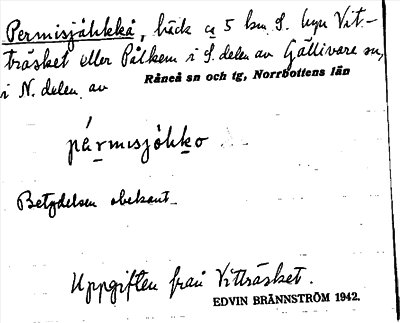 Permisjåkkå, bäck ca 5 km S. byn Vit-
träsket eller Pålkem i S. delen av Gällivare sn,
i N. delen av Råneå sn och tg, Norrbottens län
pármisjåkko
Betydelsen obekant
Uppgiften från Vitträsket.
EDVIN BRÄNNSTRÖM 1942.